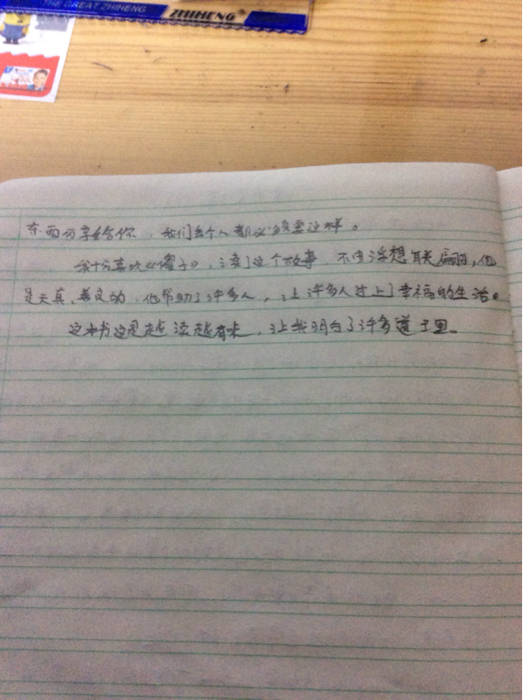 THE GREAT ZHIHENG
ZHIHENG
东西分享给你，我们每个人都必须要这样。
我十分喜欢《傻子》，读了这个故事，不由浮想联翩，他
是天真、善良的，他帮助了许多人，让许多人过上了幸福的生活。
这本书真是越读越有味，让我明白了许多道理。